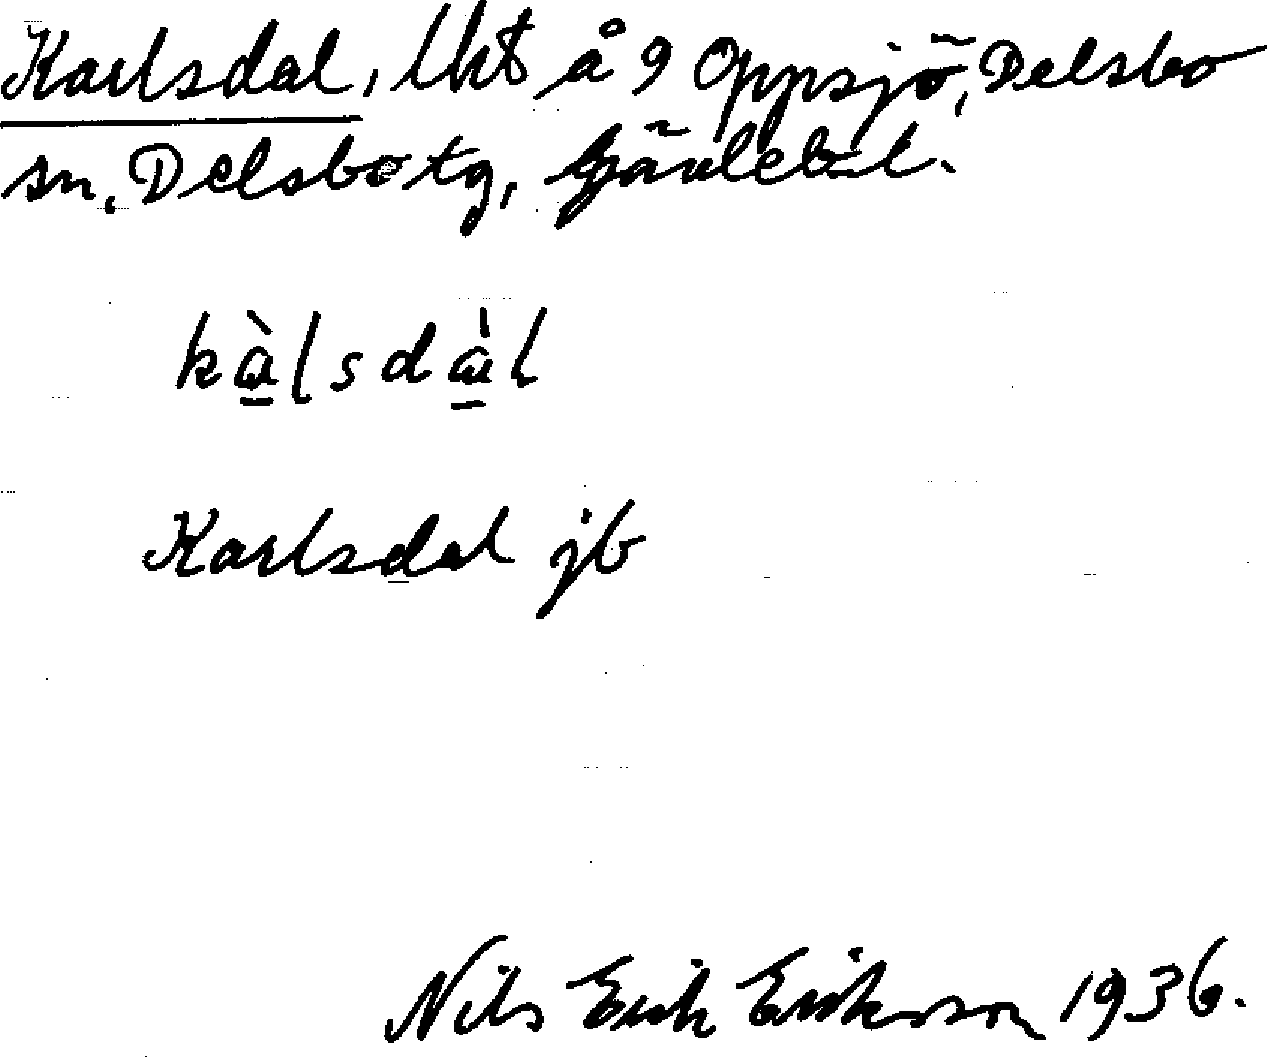 Karlsdal, lht å 9 Oppsjö, Delsbo
sn, Delsbo tg, Gävleb. l.
kàlsdàl
Karlsdal jb
Nils Erik Eriksson 1936.